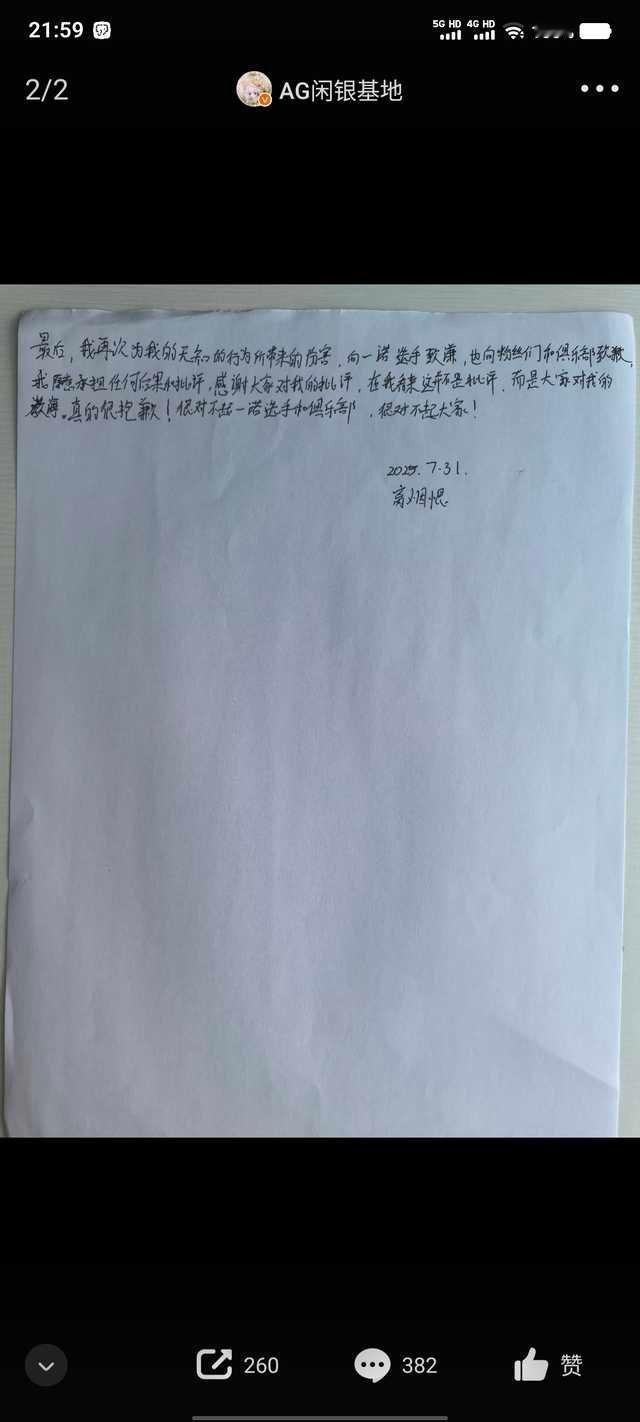 21:59
5G HD 4G HD
2/2
AG闲银基地
最后，我再次为我的无知的行为所带来的伤害，向一诺选手致廉，也向粉丝们和俱乐部致歉，
我愿意承担任何后果和批评，感谢大家对我的批评，在我看来这不是批评，而是大家对我的
教诲。真的很抱歉！很对不起一诺选手和俱乐部，很对不起大家！
2025.7.31.
离烟恨
260
382
赞